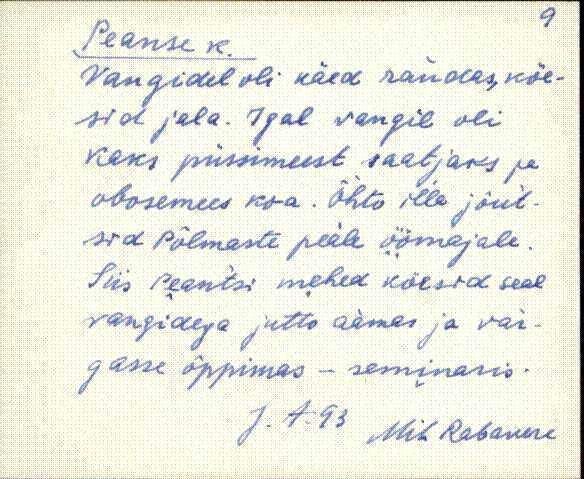 9
Peanse k.
Vangidel oli käed raudas, köe-
sid jala. Igal vangil oli
kaks püssimeest saatjaks ja
obosemees ka. Õhto illa jõut-
sid Põlmaste pääle öömajale.
Siis Peantsi mehed köesid seal
vangidega jutto aamas ja vai-
gasse õppimas – seminaris.
J. A. 93
Mih Rabavere